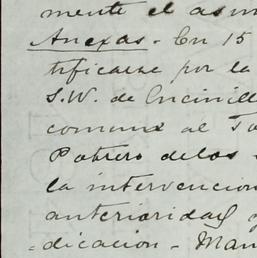 mente el asun
Anexas. En 15
tificarse por la
S.W. de Encinill
comunx al Ta
Potrero delos
la intervencion
anterioridad y
=dicacion - Man